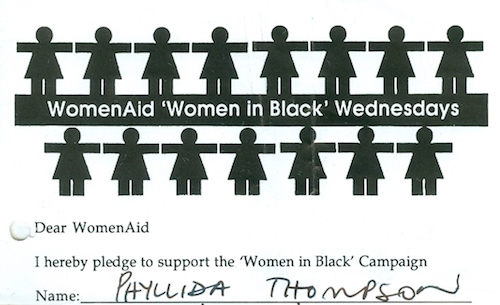 WomenAid 'Women in Black' Wednesdays
Dear WomenAid
I hereby pledge to support the 'Women in Black' Campaign
Name: PHYLLIDA THOMPSON